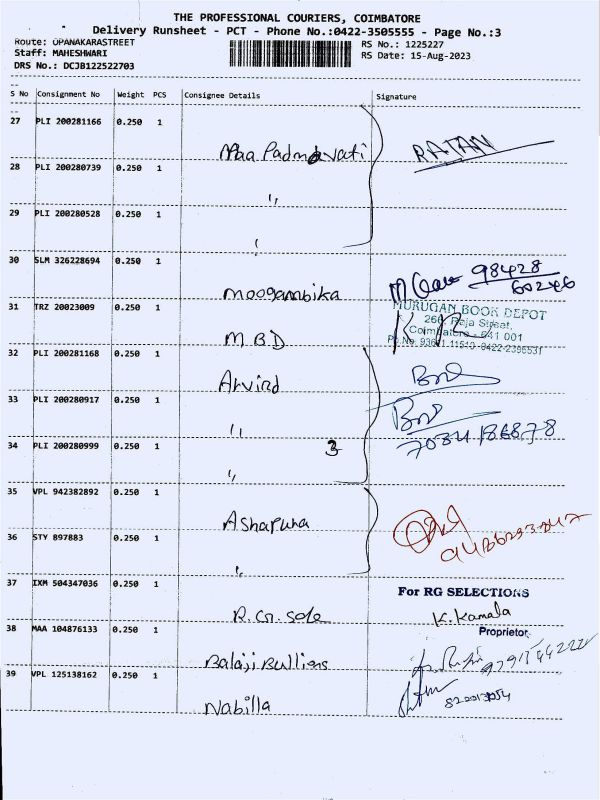 THE PROFESSIONAL COURIERS, COIMBATORE
Delivery Runsheet - PCT - Phone No.:0422-3505555 - Page No.:3
Route: OPANAKARASTREET
RS No.: 1225227
Staff: MAHESHWARI
RS Date: 15-Aug-2023
DRS No.: DCJB122522703
S No Consignment No Weight PCS Consignee Details Signature
27 PLI 200281166 0.250 1
Maa Padmavati RATAN
28 PLI 200280739 0.250 1
"
29 PLI 200280528 0.250 1
30 SLM 326228694 0.250 1
moogambika 98428
60246
31 TRZ 20023009 0.250 1
MURUGAN BOOK DEPOT
Raja Street,
M B D Coimbatore - 641 001
32 PLI 200281168 0.250 1
Arvind
33 PLI 200280917 0.250 1
"
34 PLI 200280999 0.250 1 3
"
35 VPL 942382892 0.250 1
Ashapura
36 STY 897883 0.250 1
"
37 IXM 504347036 0.250 1 For RG SELECTIONS
R.G. Sole K. Kamala
38 MAA 104876133 0.250 1 Proprietor
Balaji Bullions
39 VPL 125138162 0.250 1
Nabilla